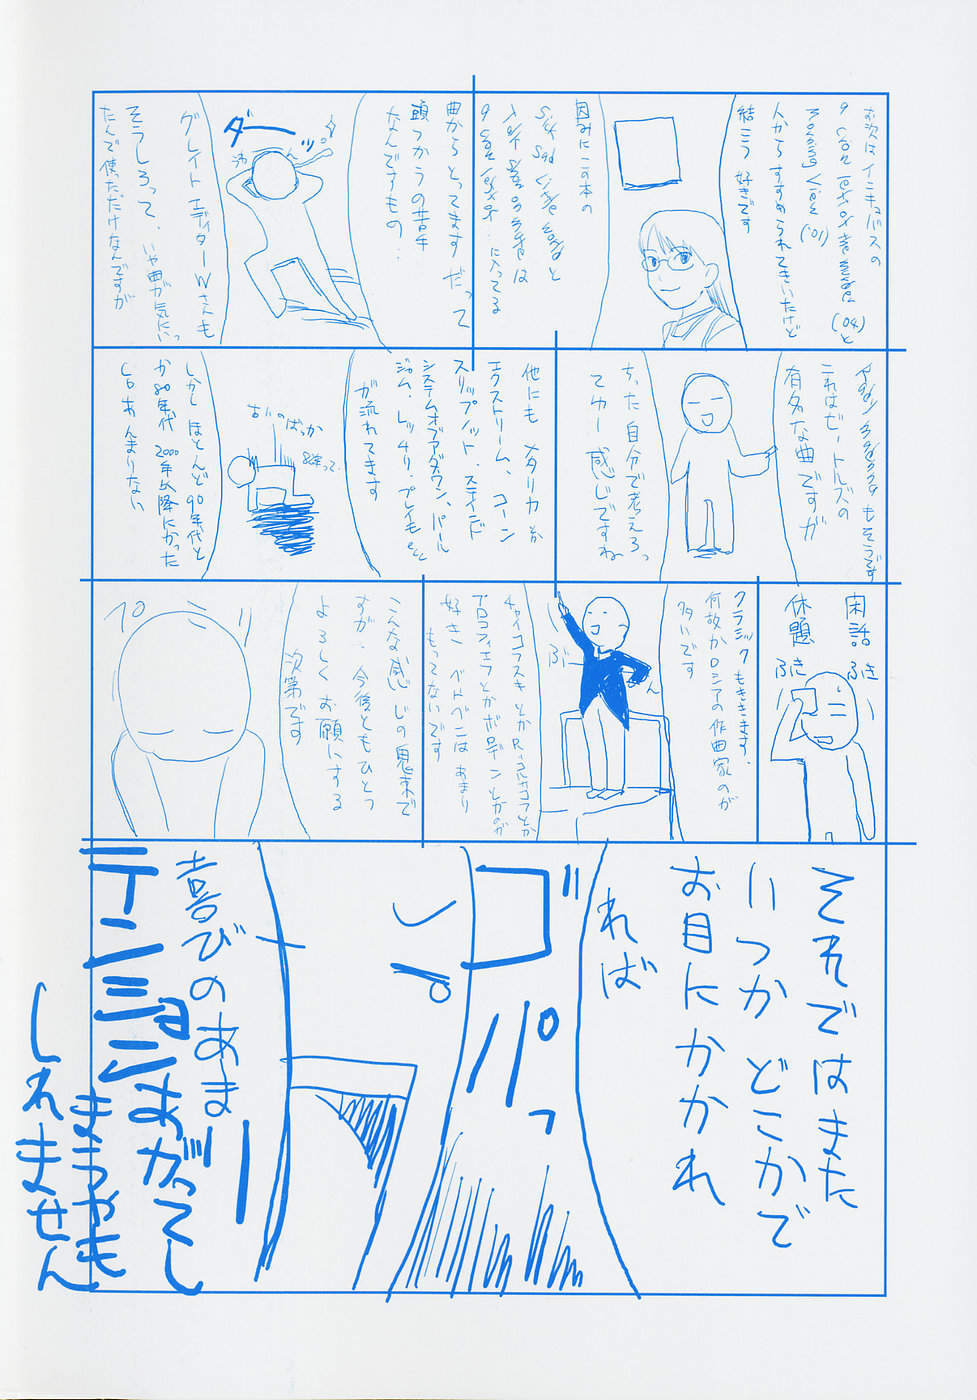 お次はインキュバスの
a crow left of the murder ('04) と
morning view ('01)
人からすすめられてきいたけど
結こう好きです
因みにこの本の
は
a crow left of‥に入ってる
曲からとってます だって
頭っからの苦手
なんですもの‥
ダーーッ
グレイト エディターWさんも
そうしろって、いや曲が気にいっ
たんで使っただけなんですが
もそうです
これはビートルズの
有名な曲ですが
ちった自分で考えろっ
てゆー感じですね
他にも メタリカ とか
エクストリーム、コーン
スリップノット、ステインド
システムオブアダウン、パール
ジャム、レッチリ、プレイもetc
が流れてます
古いのばっか
しかし ほとんど90年代と
か80年代 2000年以降にかった
CDあんまりない
閑話
休題
ふき
ふき
クラシックもききます、
何故かロシアの作曲家のが
多いです
チャイコフスキとかR・コルサコフとか
プロコフィエフとかボロディンとかのが
好き ベトベンはあまり
もってないです
ぶ
ん
こんな感じの鬼束で
すが、今後ともひとつ
よろしくお願いする
次第です
ペコ
それではまた
いつか どこかで
お目にかかれ
れば
ゴ
パッ
喜びのあまー
テンションあがってし
まうやも
しれません